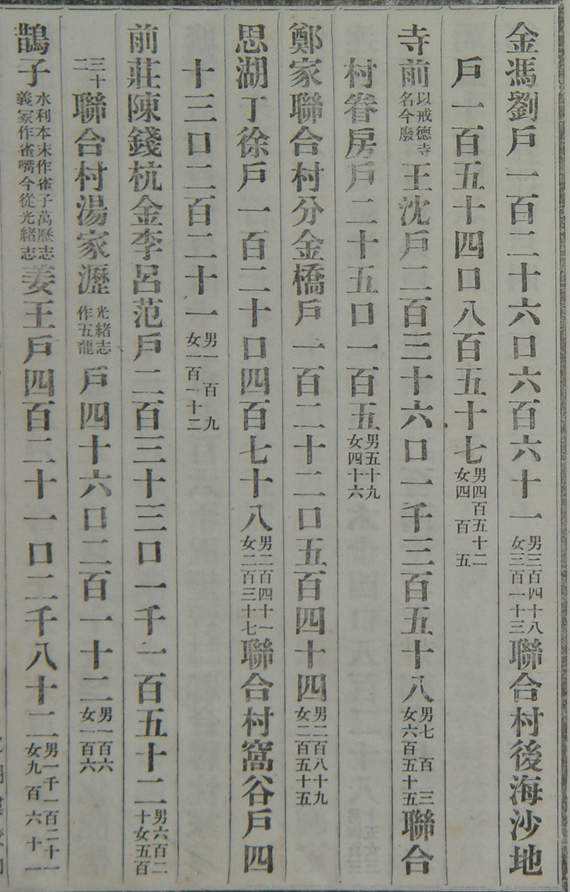 金馮劉戶一百二十六口六百六十一男三百四十八女三百一十三聯合村後海沙地
戶一百五十四口八百五十七男四百五十二女四百五
寺前以戒德寺名今廢王沈戶二百三十六口一千三百五十八男七百三女六百五十五聯合
村眷房戶二十五口一百五男五十九女四十六
鄭家聯合村分金橋戶一百二十二口五百四十四男二百八十九女二百五十五
思湖丁徐戶一百二十口四百七十八男二百四十一女二百三十七聯合村窩谷戶四
十三口二百二十一男一百九女一百一十二
前莊陳錢杭金李呂范戶二百三十三口一千一百五十二男六百二十女五百
三十二聯合村湯家瀝光緒志作五龍戶四十六口二百一十二男一百六女一百六
鵲子水利本末作雀子萬歷志義冢作雀嘴今從光緒志姜王戶四百二十一口二千八十二男一千一百二十一女九百六十一